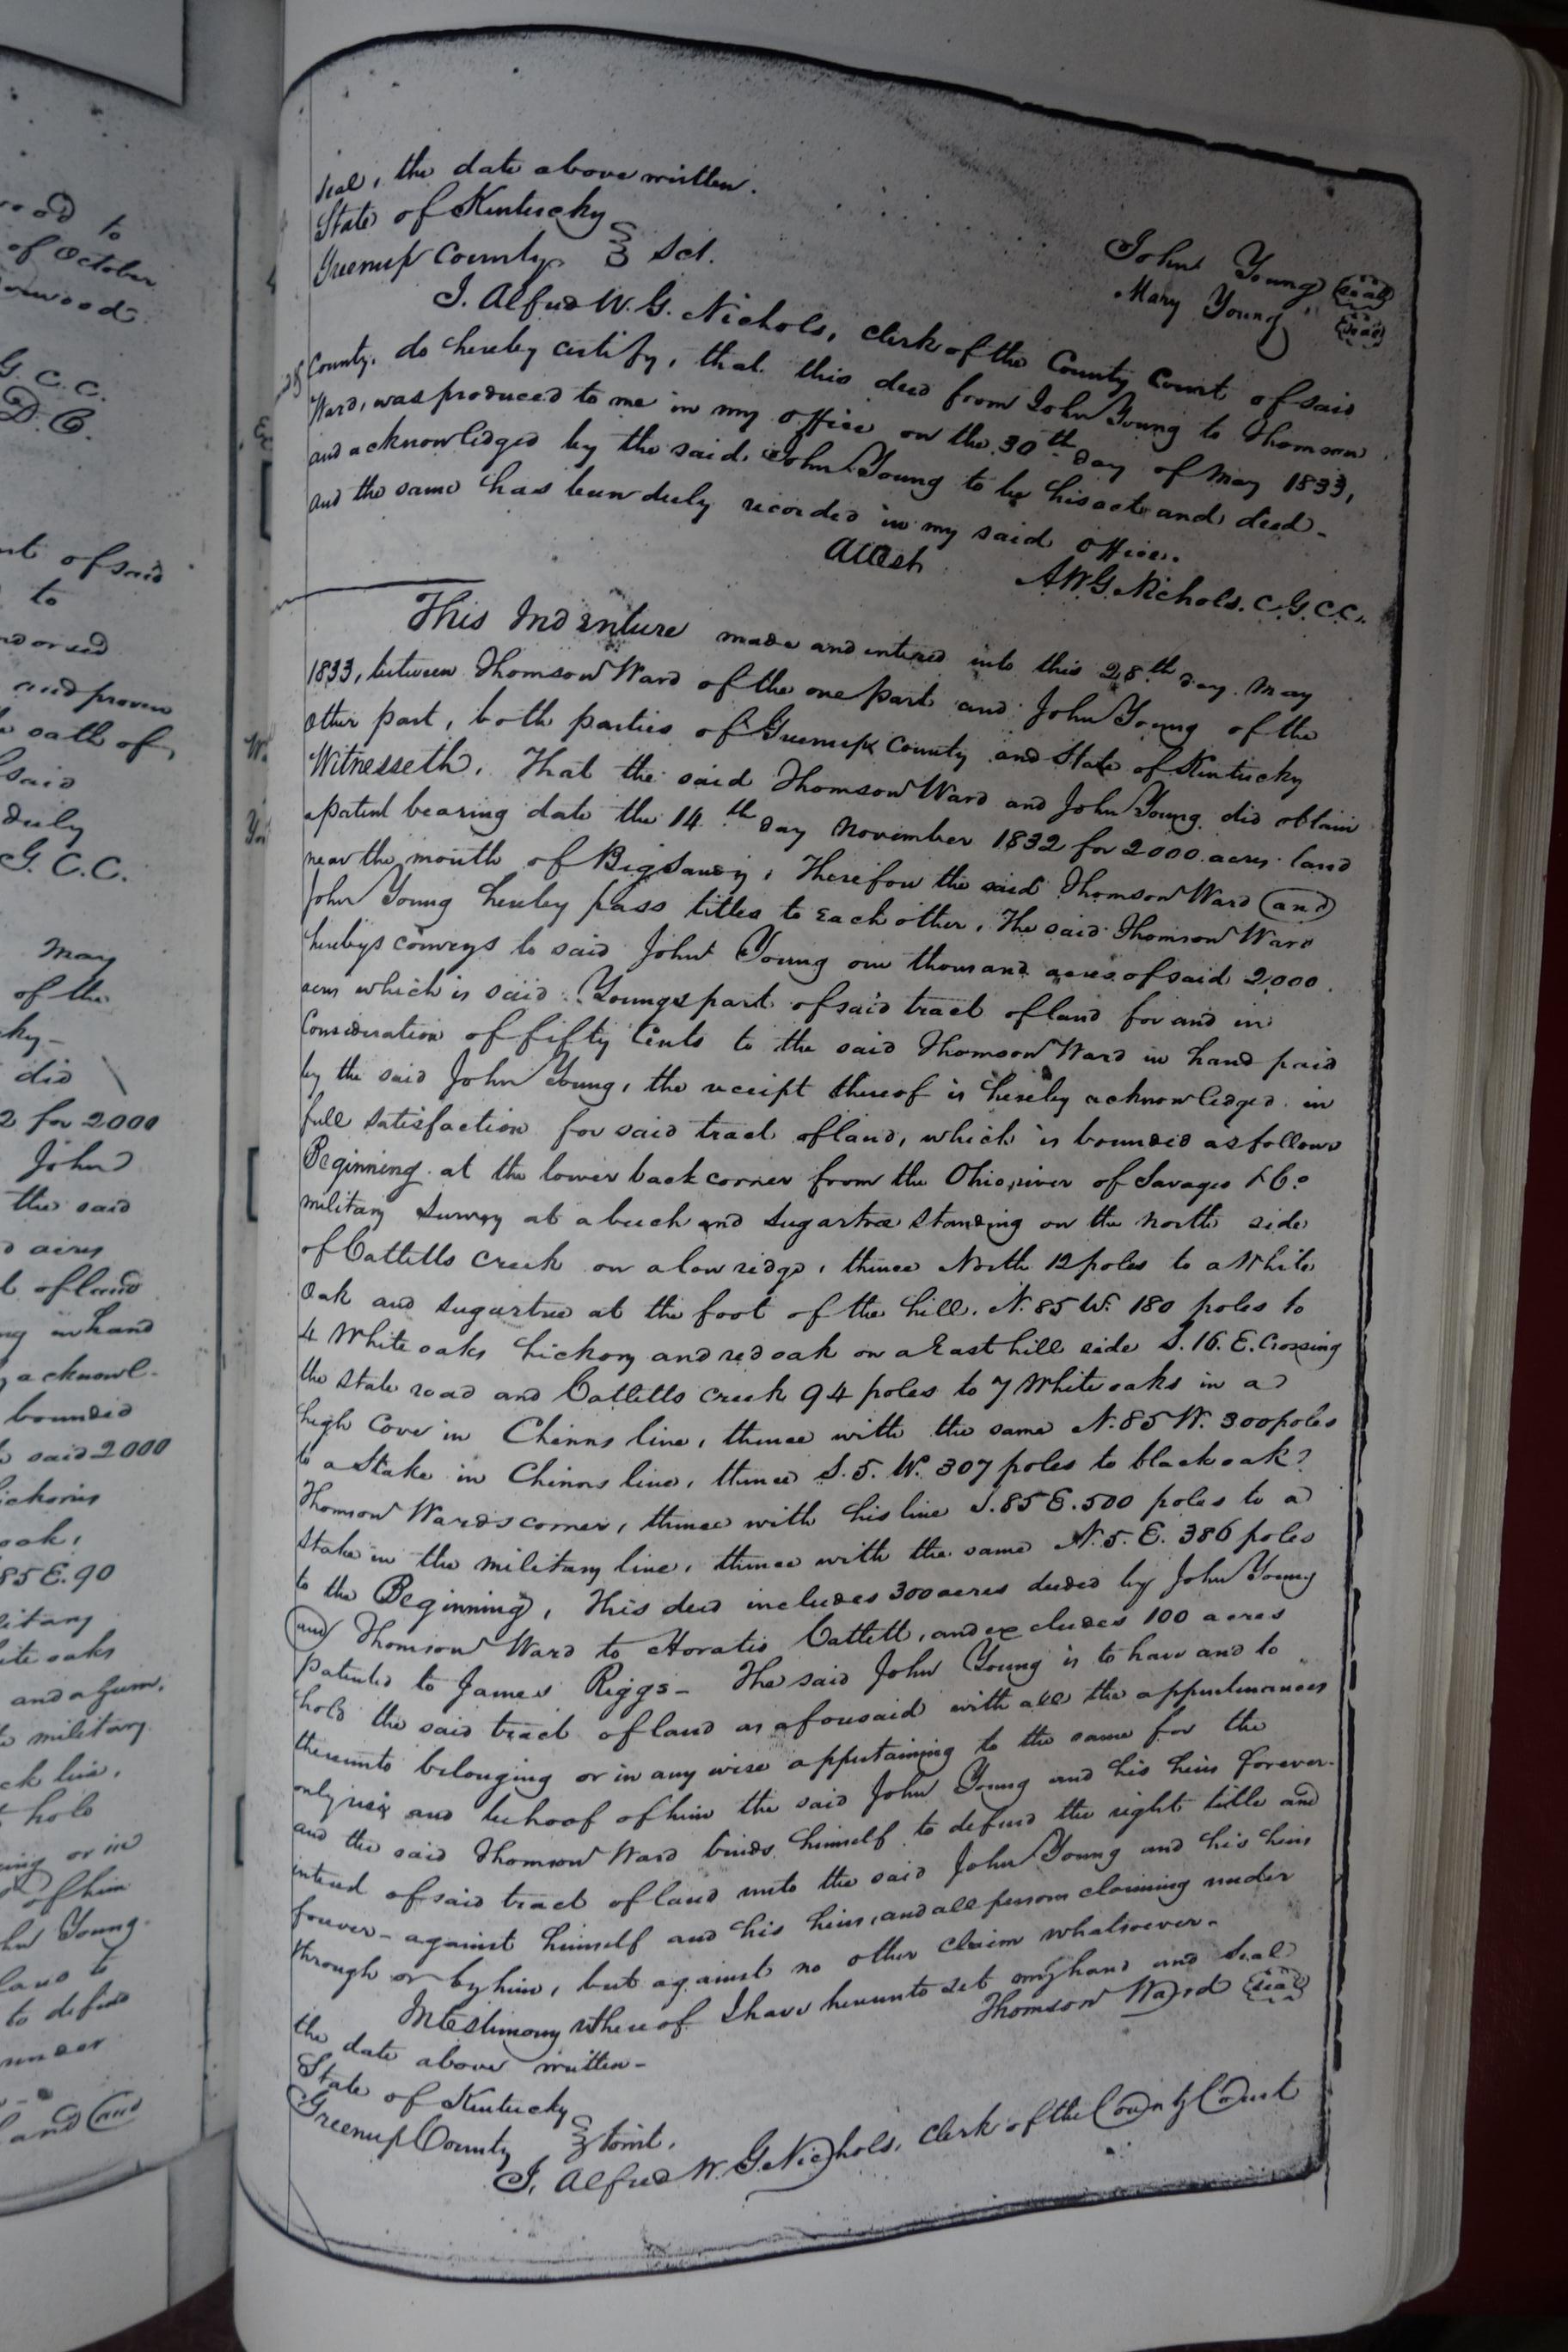 ood to
of October
orwood.
G. C. C.
D. C.
nt of said
to
ndorsed
and proven
oath of
said
duly
G. C. C.
May
of the
cky-
did
2 for 2000
John
the said
acres
t of land
ng in hand
y acknowl-
bounded
said 2000
hickories
oak,
85 E. 90
military
ite oaks
and a gum,
military
ck line,
hold
ning or in
of him
hn Young.
land to
to defend
under
land and
seal, the date above written.
John Young, seal
Mary Young seal
State of Kentucky
Greenup County Sct.
I. Alfred W. G. Nichols, clerk of the County Court of said
County, do hereby certify, that this deed from John Young to Thomson
Ward, was produced to me in my office on the 30th day of May 1833,
and acknowledged by the said John Young to be his act and deed-
and the same has been duly recorded in my said office.
Attest A. W. G. Nichols. C. G. C. C.
This Indenture made and entered into this 28th day May
1833, between Thomson Ward of the one part and John Young of the
other part, both parties of Greenup County and State of Kentucky
Witnesseth. That the said Thomson Ward and John Young did obtain
a patent bearing date the 14th day November 1832 for 2000 acres land
near the mouth of Big Sandy, Therefore the said Thomson Ward and
John Young hereby pass titles to Each other, The said Thomson Ward
hereby conveys to said John Young one thousand acres of said 2,000
acres which is said Youngs part of said tract of land for and in
Consideration of fifty Cents to the said Thomson Ward in hand paid
by the said John Young, the receipt thereof is hereby acknowledged in
full satisfaction for said tract of land, which is bounded as follows
Beginning at the lower back corner from the Ohio river of Savages & Co
military Survey at a beech and Sugartree standing on the north side
of Catletts creek on a low ridge, thence North 12 poles to a White
Oak and sugartree at the foot of the hill. N. 85 W. 180 poles to
4 White oaks hickory and red oak on a East hill side S. 16. E. Crossing
the state road and Catletts creek 94 poles to 7 White oaks in a
high Cove in Chinns line, thence with the same N. 85 W. 300 poles
to a Stake in Chinns line, thence S. 5. W. 307 poles to black oak
Thomson Wards corner, thence with his line S. 85 E. 500 poles to a
Stake in the military line, thence with the same N. 5. E. 386 poles
to the Beginning, This deed includes 300 acres deeded by John Young
and Thomson Ward to Horatio Catlett, and excludes 100 acres
patented to James Riggs- The said John Young is to have and to
hold the said tract of land as aforesaid with all the appurtenances
thereunto belonging or in any wise appertaining to the same for the
only use and behoof of him the said John Young and his heirs forever-
and the said Thomson Ward binds himself to defend the right title and
interest of said tract of land unto the said John Young and his heirs
forever- against himself and his heirs, and all persons claiming under
through or by him, but against no other claim whatsoever-
In testimony whereof I have hereunto set my hand and seal
the date above written- Thomson Ward seal
State of Kentucky
Greenup County towit,
I, Alfred W. G. Nichols, Clerk of the County Court